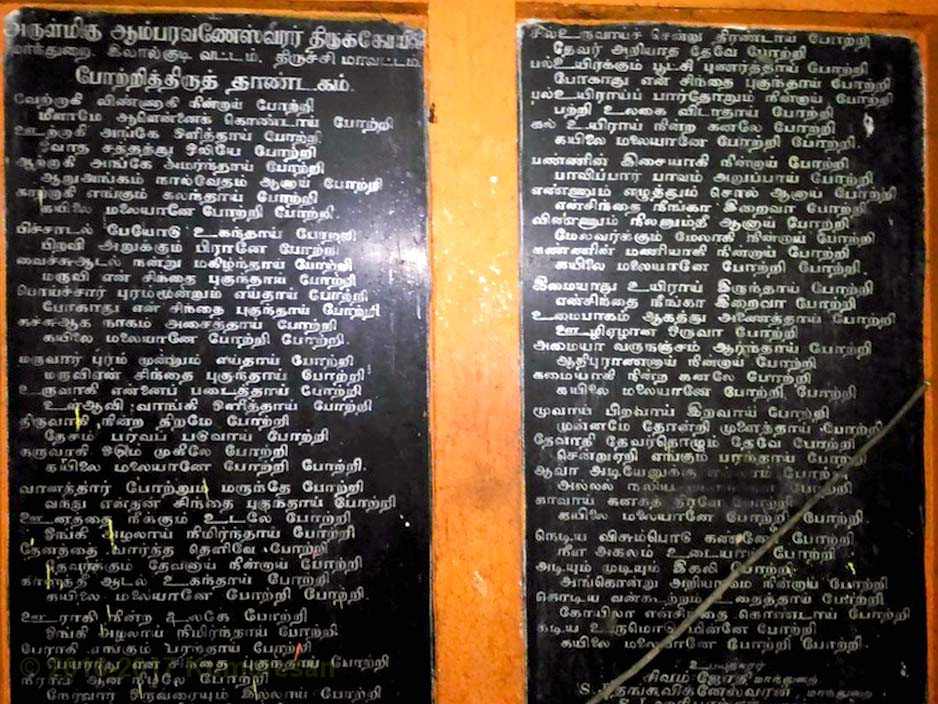 அருள்மிகு ஆம்பரவணேஸ்வரர் திருக்கோயில்
மாந்துறை, இலால்குடி வட்டம், திருச்சி மாவட்டம்
போற்றித்திருத் தாண்டகம்.
வேற்றாகி விண்ணாகி நின்றாய் போற்றி
மீளாமே ஆளென்னைக் கொண்டாய் போற்றி
ஊற்றாகி அங்கே ஒளித்தாய் போற்றி
ஓவாத சத்தத்து ஒலியே போற்றி
ஆற்றாகி அங்கே அமர்ந்தாய் போற்றி
ஆறுஅங்கம் நால்வேதம் ஆனாய் போற்றி
காற்றாகி எங்கும் கலந்தாய் போற்றி
கயிலை மலையானே போற்றி போற்றி.
பிச்சாடல் பேயோடு உகந்தாய் போற்றி
பிறவி அறுக்கும் பிரானே போற்றி
வைச்சுஆடல் நன்று மகிழ்ந்தாய் போற்றி
மருவி என் சிந்தை புகுந்தாய் போற்றி
பொய்ச்சார் புரம்மூன்றும் எய்தாய் போற்றி
போகாது என் சிந்தை புகுந்தாய் போற்றி
கச்சுஆக நாகம் அசைத்தாய் போற்றி
கயிலை மலையானே போற்றி போற்றி.
மருவார் புரம் மூன்றும் எய்தாய் போற்றி
மருவிஎன் சிந்தை புகுந்தாய் போற்றி
உருவாகி என்னைப் படைத்தாய் போற்றி
உள்ஆவி வாங்கி ஒளித்தாய் போற்றி
திருவாகி நின்ற திறமே போற்றி
தேசம் பரவப் படுவாய் போற்றி
கருவாகி ஓடும் முகிலே போற்றி
கயிலை மலையானே போற்றி போற்றி.
வானத்தார் போற்றும் மருந்தே போற்றி
வந்து என்தன் சிந்தை புகுந்தாய் போற்றி
ஊனத்தை நீக்கும் உடலே போற்றி
ஓங்கி அழலாய் நிமிர்ந்தாய் போற்றி
தேனத்தை வார்த்த தெளிவே போற்றி
தேவர்க்கும் தேவனாய் நின்றாய் போற்றி
கானத்தீ ஆடல் உகந்தாய் போற்றி
கயிலை மலையானே போற்றி போற்றி.
ஊராகி நின்ற உலகே போற்றி
ஓங்கி அழலாய் நிமிர்ந்தாய் போற்றி
பேராகி எங்கும் பரந்தாய் போற்றி
பெயராது என் சிந்தை புகுந்தாய் போற்றி
நீராவி ஆன நிழலே போற்றி
நேர்வார் ஒருவரையும் இல்லாய் போற்றி
சில்உருவாய்ச் சென்று திரண்டாய் போற்றி
தேவர் அறியாத தேவே போற்றி
பல்உயிர்க்கும் பூட்சி புணர்த்தாய் போற்றி
போகாது என் சிந்தை புகுந்தாய் போற்றி
பல்உயிராய்ப் பார்தோறும் நின்றாய் போற்றி
பற்றி உலகை விடாதாய் போற்றி
கல் உயிராய் நின்ற கனலே போற்றி
கயிலை மலையானே போற்றி போற்றி.
பண்ணின் இசையாகி நின்றாய் போற்றி
பாவிப்பார் பாவம் அறுப்பாய் போற்றி
எண்ணும் எழுத்தும் சொல் ஆனாய் போற்றி
என்சிந்தை நீங்கா இறைவா போற்றி
விண்ணும் நிலனும்தீ ஆனாய் போற்றி
மேலவர்க்கும் மேலாகி நின்றாய் போற்றி
கண்ணின் மணியாகி நின்றாய் போற்றி
கயிலை மலையானே போற்றி போற்றி.
இமையாது உயிராய் இருந்தாய் போற்றி
என்சிந்தை நீங்கா இறைவா போற்றி
உமைபாகம் ஆகத்து அணைத்தாய் போற்றி
ஊழிஏழான ஒருவா போற்றி
அமையா வருநஞ்சம் ஆர்ந்தாய் போற்றி
ஆதிபுராணனாய் நின்றாய் போற்றி
கமையாகி நின்ற கனலே போற்றி
கயிலை மலையானே போற்றி போற்றி.
மூவாய் பிறவாய் இறவாய் போற்றி
முன்னமே தோன்றி முளைத்தாய் போற்றி
தேவாதி தேவர்தொழும் தேவே போற்றி
சென்றுஏறி எங்கும் பரந்தாய் போற்றி
ஆவா அடியேனுக்கு போற்றி
அல்லல் நலிய போற்றி
காவாய் கனகத் திரளே போற்றி
கயிலை மலையானே போற்றி போற்றி.
நெடிய விசும்பொடு கண்ணே போற்றி
நீள அகலம் உடையாய் போற்றி
அடியும் முடியும் இகலி போற்றி
அங்கொன்று அறியாமை நின்றாய் போற்றி
கொடிய வன்கூற்றம் உதைத்தாய் போற்றி
கோயிலா என்சிந்தை கொண்டாய் போற்றி
கடிய உருமொடு மின்னே போற்றி
கயிலை மலையானே போற்றி போற்றி.
உபயதாரர்
சிவம் ஜோதி மாந்துறை
S. தங்கவிக்னேஸ்வரன், மாந்துறை